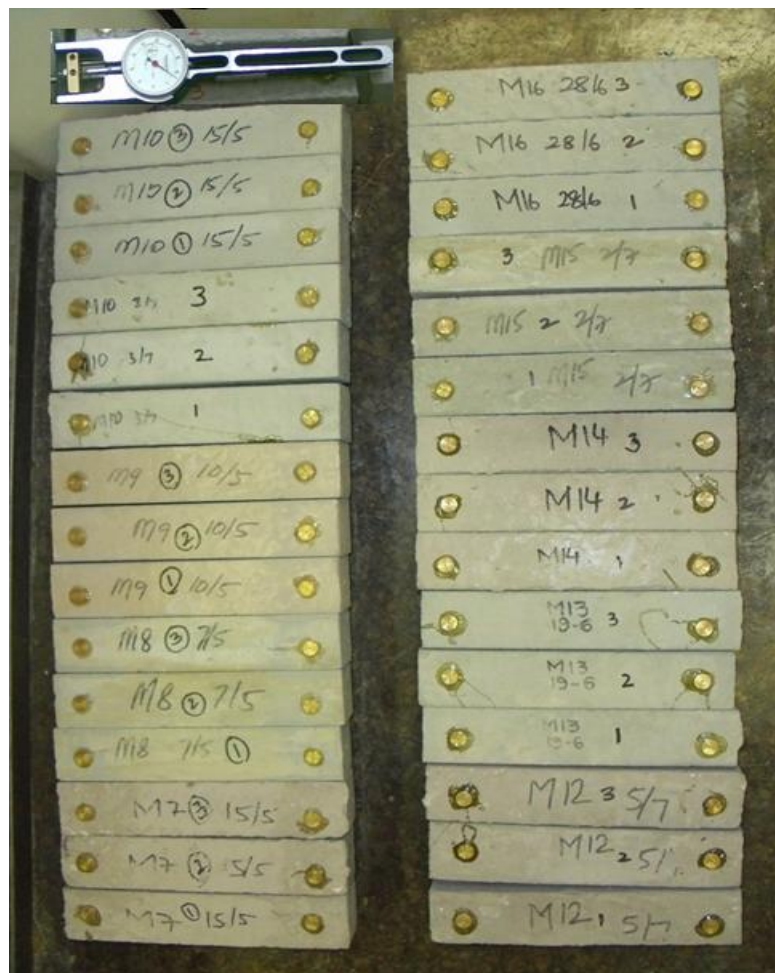 M10 ③ 15/5
M10 ② 15/5
M10 ① 15/5
M10 3/7 3
M10 3/7 2
M10 3/7 1
M9 ③ 10/5
M9 ② 10/5
M9 ① 10/5
M8 ③ 7/5
M8 ② 7/5
M8 7/5 ①
M7 ③ 15/5
M7 ② 15/5
M7 ① 15/5
M16 28/6 3
M16 28/6 2
M16 28/6 1
3 M15 2/7
M15 2 2/7
1 M15 2/7
M14 3
M14 2
M14 1
M13
19-6 3
M13
19-6 2
M13
19-6 1
M12 3 5/7
M12 2 5/
M12 1 5/7